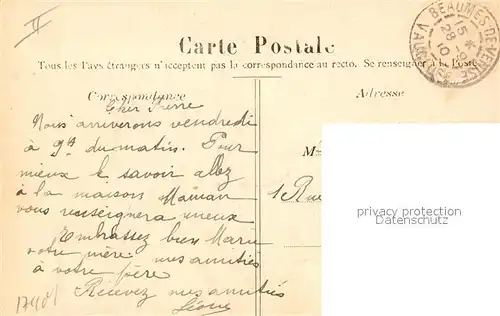 II
BEAUMES DE VENISE
15 K
28 -9
10
VAUCLUSE
Carte Postale
Tous les Pays étrangers n'acceptent pas la correspondance au recto. Se renseigner à la Poste
Correspondance
Adresse
Cher Pierre
Nous arriverons vendredi
à 9h du matin. Pour
mieux le savoir allez
à la maison Maman
vous renseignera mieux
Embrassez bien Marie
votre mère. mes amitiés
à votre père
Recevez mes amitiés
Léonie
M
1 Rue
privacy protection
Datenschutz
17401